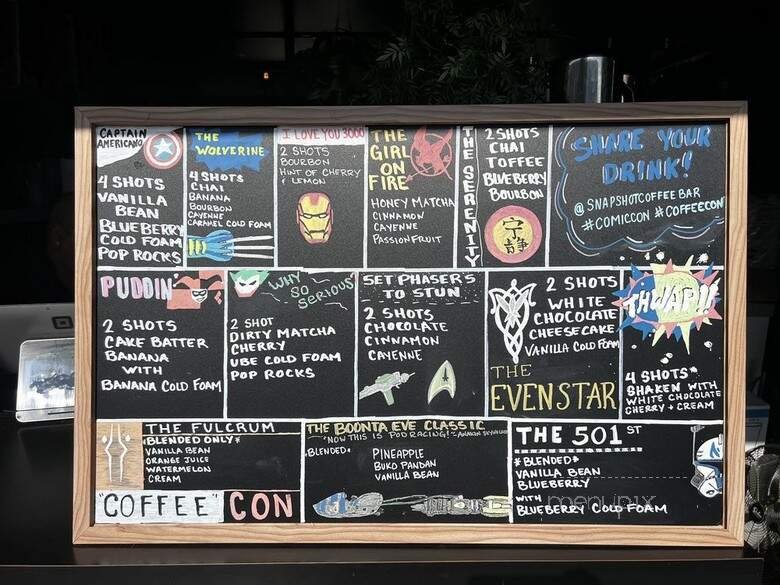 CAPTAIN
AMERICANO
4 SHOTS
VANILLA
BEAN
BLUEBERRY
COLD FOAM
POP ROCKS
THE
WOLVERINE
4 SHOTS
CHAI
BANANA
BOURBON
CAYENNE
CARAMEL COLD FOAM
I LOVE YOU 3000
2 SHOTS
BOURBON
HINT OF CHERRY
+ LEMON
THE
GIRL
ON
FIRE
HONEY MATCHA
CINNAMON
CAYENNE
PASSIONFRUIT
THE SERENITY
2 SHOTS
CHAI
TOFFEE
BLUEBERRY
BOURBON
SHARE YOUR
DRINK!
@SNAPSHOTCOFFEE BAR
#COMICCON #COFFEECON
PUDDIN
2 SHOTS
CAKE BATTER
BANANA
WITH
BANANA COLD FOAM
WHY
SO
SERIOUS
2 SHOT
DIRTY MATCHA
CHERRY
UBE COLD FOAM
POP ROCKS
SET PHASER'S
TO STUN
2 SHOTS
CHOCOLATE
CINNAMON
CAYENNE
2 SHOTS
WHITE
CHOCOLATE
CHEESECAKE
VANILLA COLD FOAM
THE
EVENSTAR
THWAP!!
4 SHOTS*
SHAKEN WITH
WHITE CHOCOLATE
CHERRY + CREAM
THE FULCRUM
*BLENDED ONLY*
VANILLA BEAN
ORANGE JUICE
WATERMELON
CREAM
"COFFEE" CON
THE BOONTA EVE CLASSIC
"NOW THIS IS PODRACING!"
*BLENDED*
PINEAPPLE
BUKO PANDAN
VANILLA BEAN
THE 501ST
*BLENDED*
VANILLA BEAN
BLUEBERRY
WITH
BLUEBERRY COLD FOAM
menupix